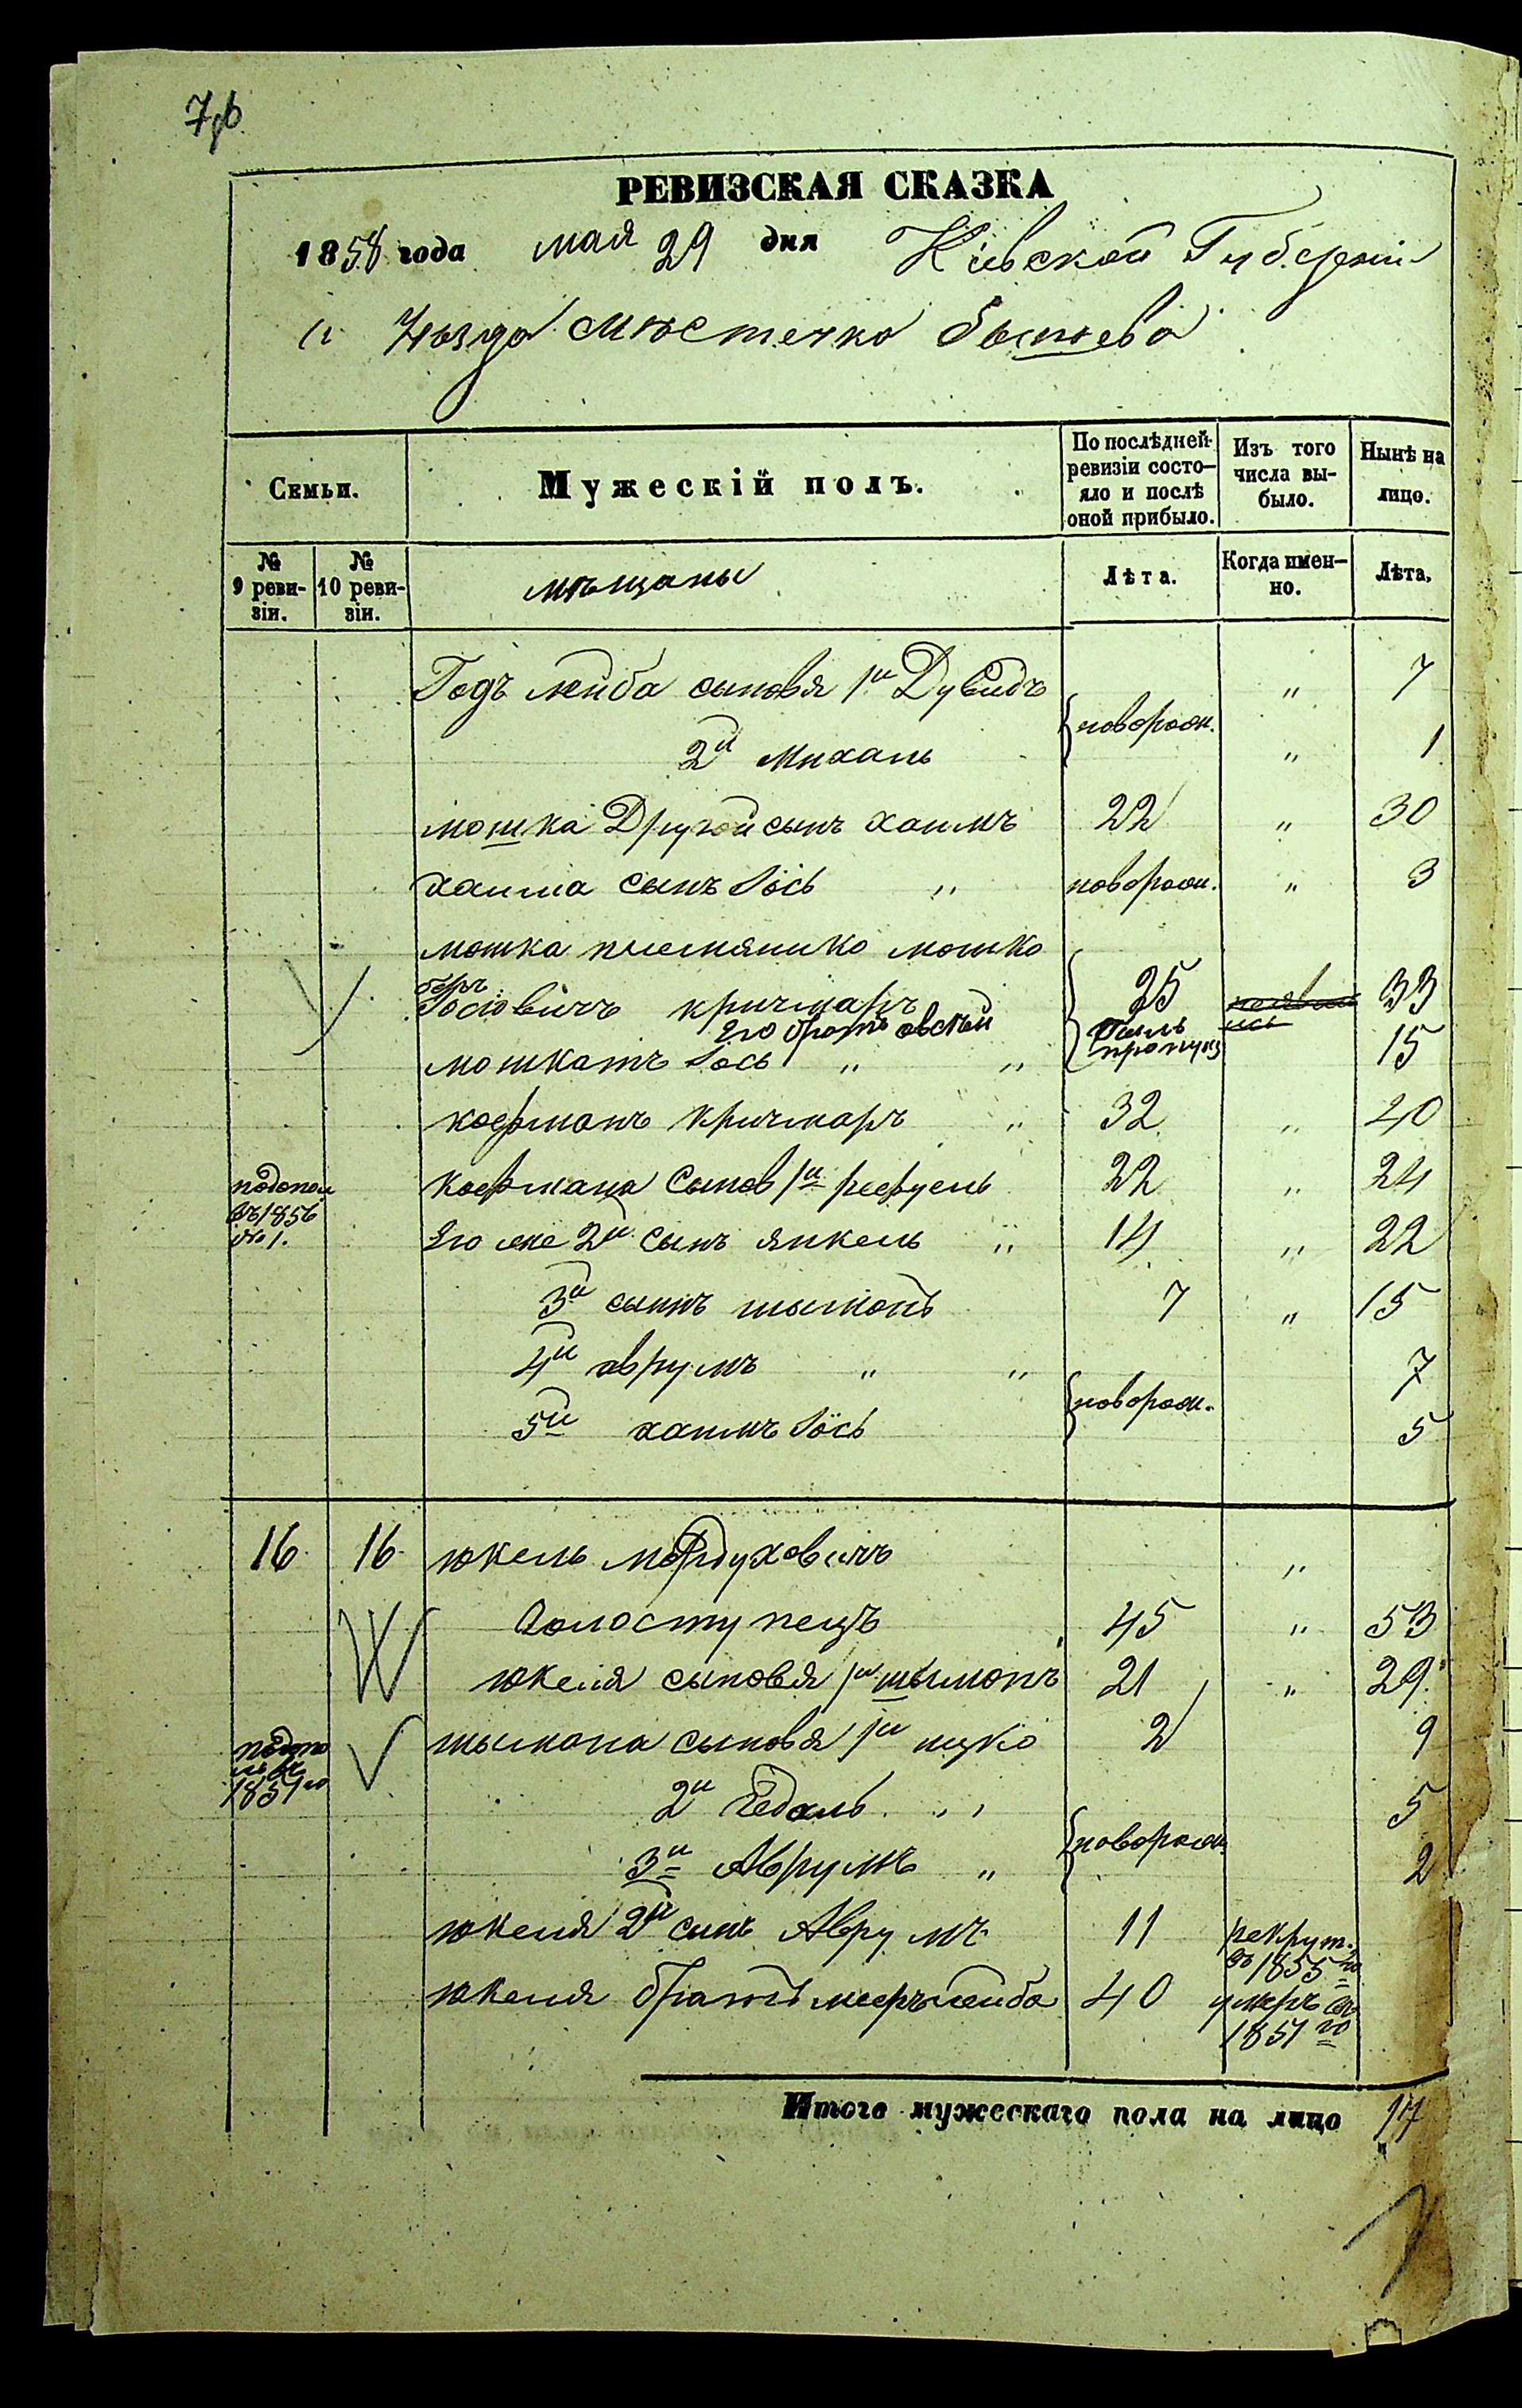 РЕВИЗСКАЯ СКАЗКА
1858 года мая 29 дня Кіевской Губерніи
и Уѣзда мѣстечка Бышева
Семьи.
Мужескій полъ.
По послѣдней ревизіи состо-
яло и послѣ
оной прибыло.
Изъ того
числа вы-
было.
Нынѣ на
лицо.
№
9 реви-
зіи.
№
10 реви-
зіи.
мѣщаны
Лѣта.
Когда имен-
но.
Лѣта.
лейба сыновя 1й Дувидъ " 7
новорож.
2й Михаль " 1
мошка Другой сынъ хаимъ 22 " 30
хаима сынъ Іось " новорож. " 3
мошка племянико мошко
беръ
Іосіовичъ кричмаръ 25 33
Его братъ овсѣй
Іось " " 15
кофманъ кричмаръ " 32 " 40
кофмана Сынов 1й рефуель 22 " 24
въ 1856
№ 1.
Его же 2й сынъ янкель " 14 " 22
3й сынъ шымонъ 7 " 15
4й аврумъ " " 7
новорож.
5й хаимъ Іось 5
16 16 юкель мордуховичъ "
Холоступецъ 45 " 53
юкеля сыновя 1й шымонъ 21 " 29
шымона сыновя 1й ицко 2 9
1851го
2й Гедаль " 5
новорож.
3й Аврумъ " 2
юкеля 2й сынъ Аврумъ 11 рекрут.
въ 1855го
юкеля братъ мееръ лейба 40 умеръ въ
1851го
Итого мужескаго пола на лицо 17